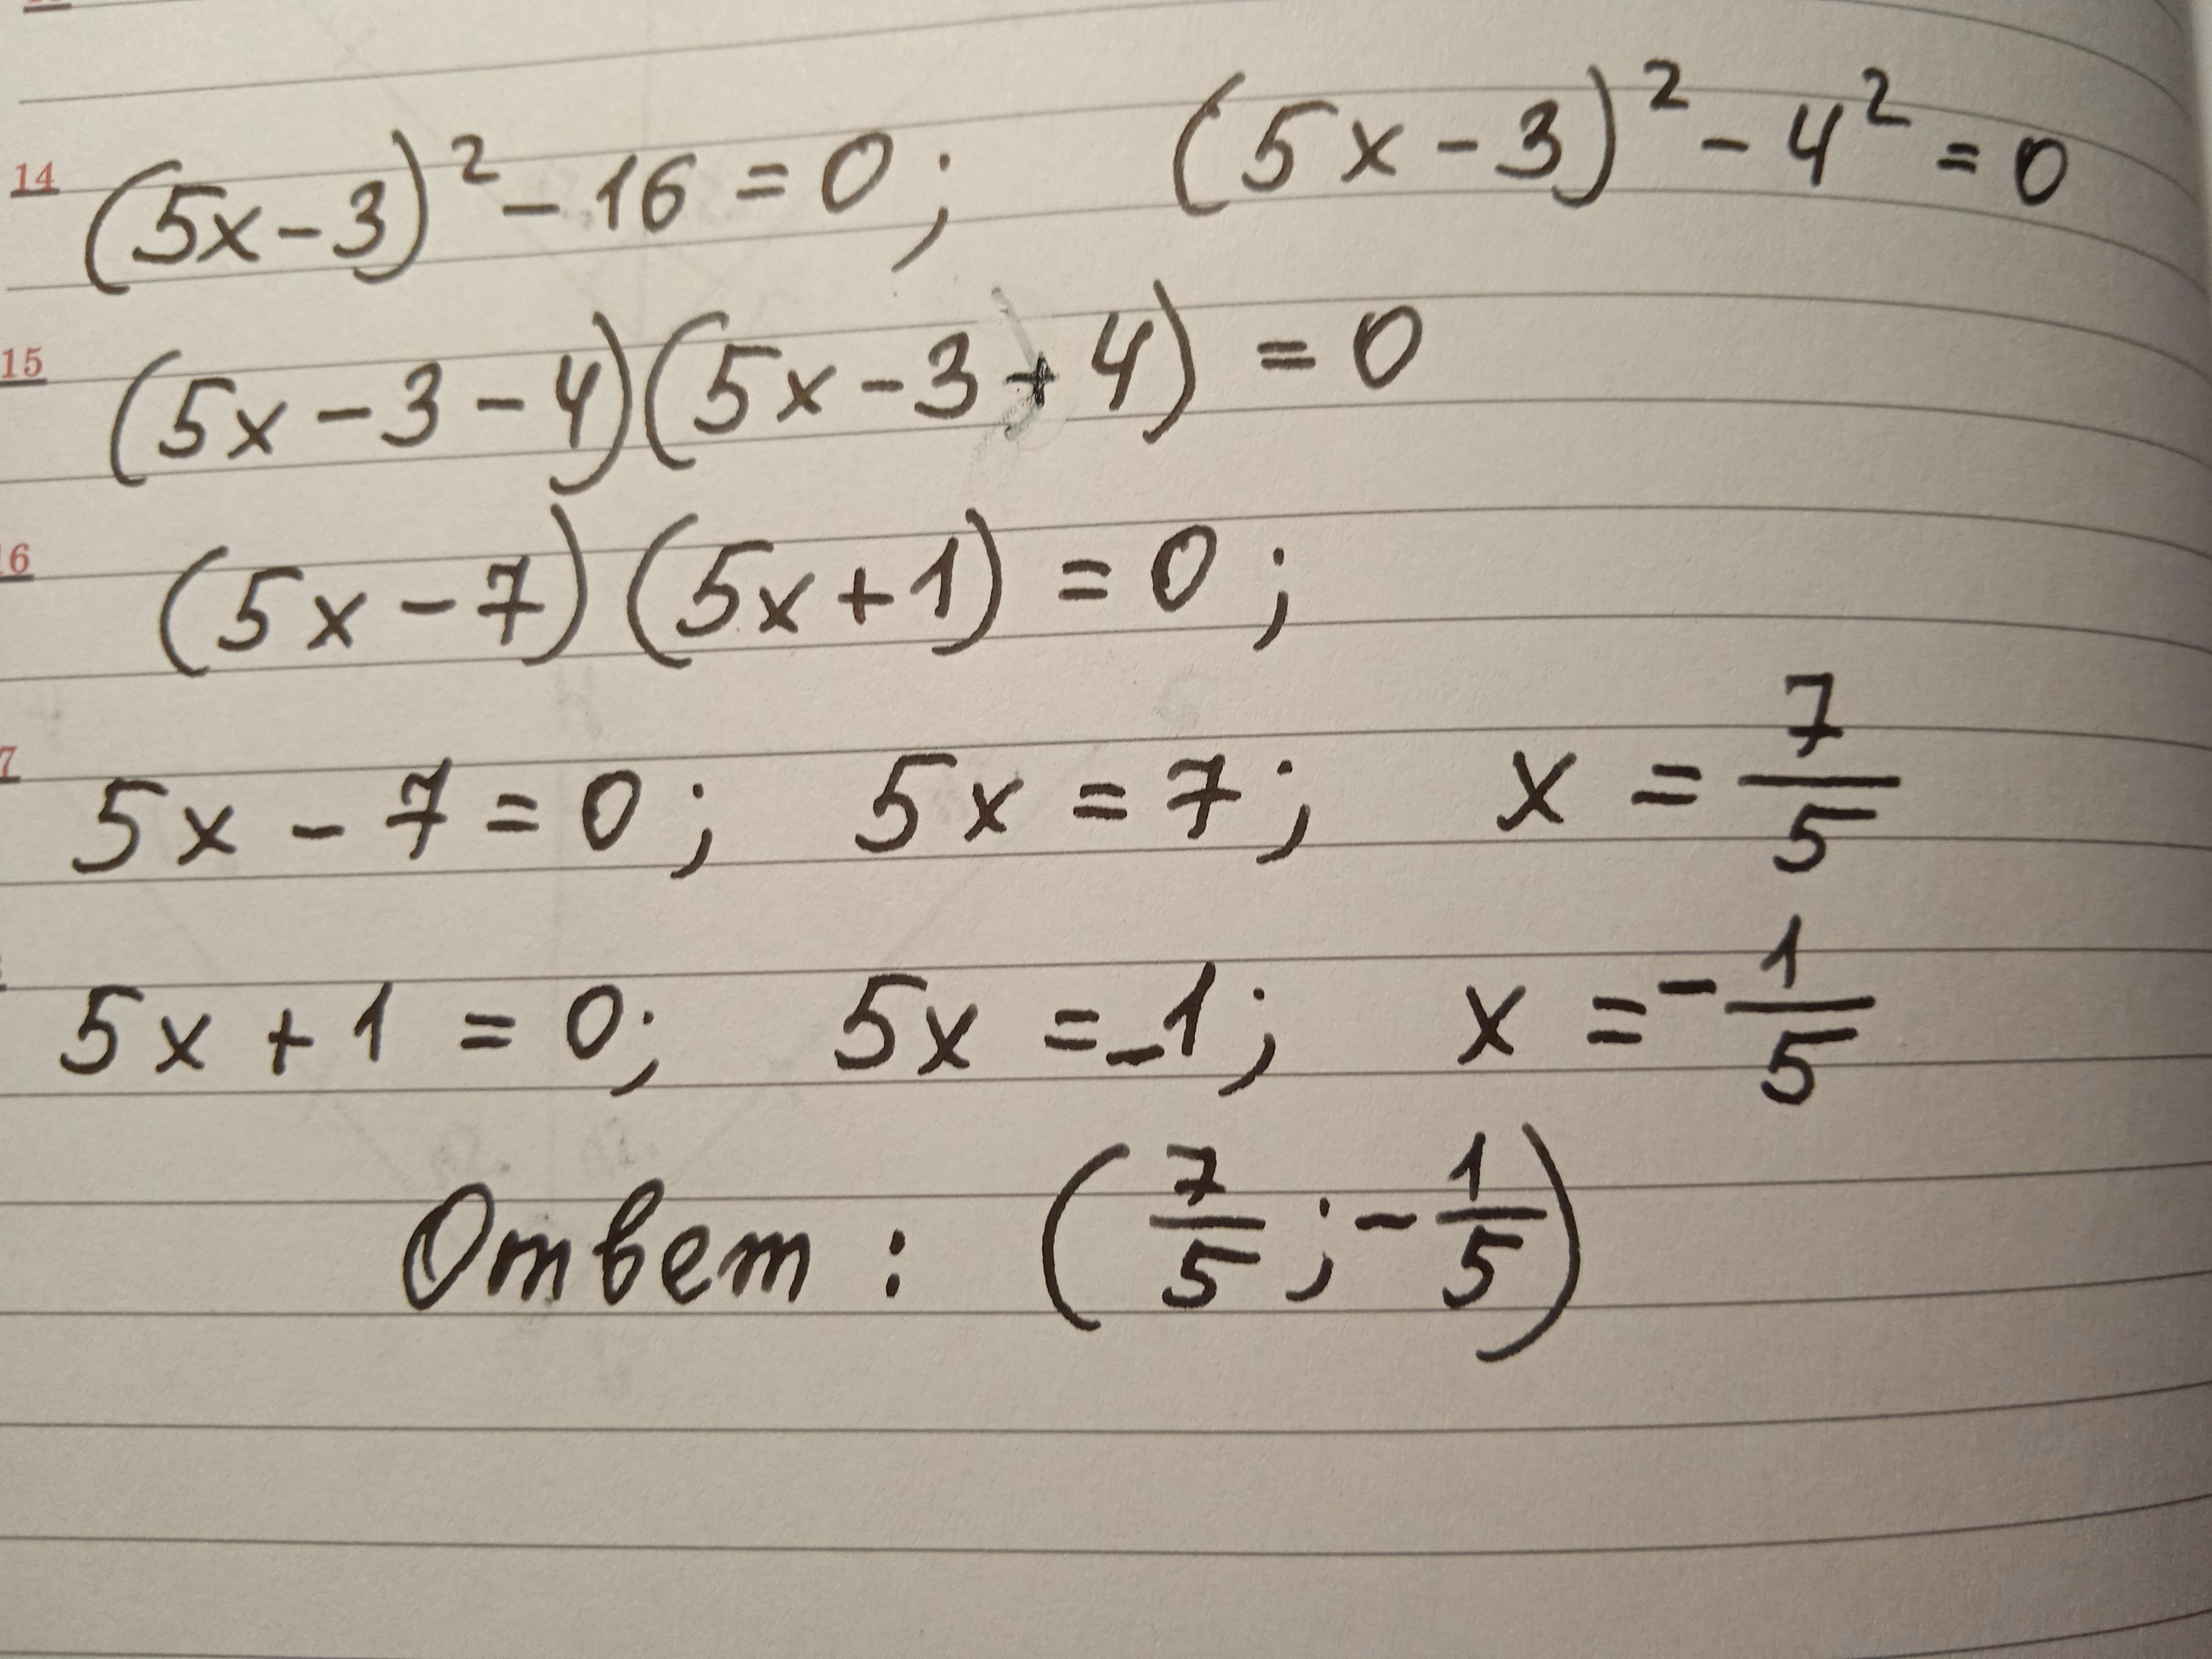 14 (5x-3)² - 16 = 0; (5x-3)² - 4² = 0
15 (5x-3-4)(5x-3+4) = 0
16 (5x-7)(5x+1) = 0;
7 5x-7=0; 5x=7; x = 7/5
5x+1=0; 5x=-1; x = -1/5
Ответ: (7/5; -1/5)